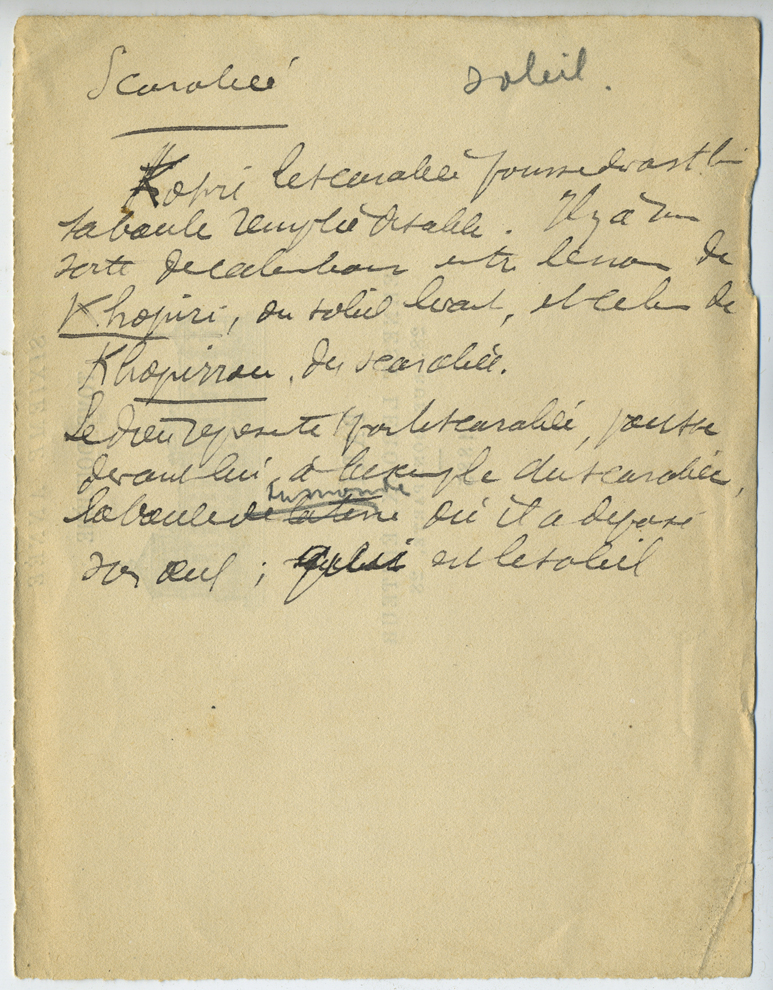 Scarabée soleil.
Kopri le scarabée pousse devant lui
sa boule remplie de sable. Il y a une
sorte de calembour entre le nom de
Khopiri, du soleil levant, et celui de
Khopirrou, du scarabée.
Le dieu représenté par le scarabée, pousse
devant lui, à l'exemple du scarabée,
du monde
la boule de la terre où il a déposé
son œuf ; qui est le soleil